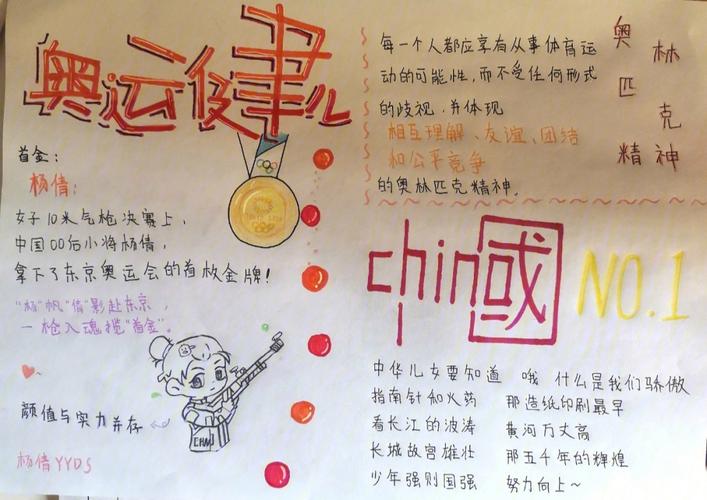 奥运健儿
首金:
杨倩:
女子10米气枪决赛上,
中国00后小将杨倩,
拿下了东京奥运会的首枚金牌!
"杨"帆"倩"影赴东京,
一枪入魂揽"首金"。
颜值与实力并存
杨倩YYDS
CHN
每一个人都应享有从事体育运
动的可能性,而不受任何形式
的歧视.并体现
相互理解、友谊、团结
和公平竞争
的奥林匹克精神.
奥林匹克精神
chin国
NO.1
中华儿女要知道 哦 什么是我们骄傲
指南针和火药 那造纸印刷最早
看长江的波涛 黄河万丈高
长城故宫雄壮 那五千年的辉煌
少年强则国强 努力向上~